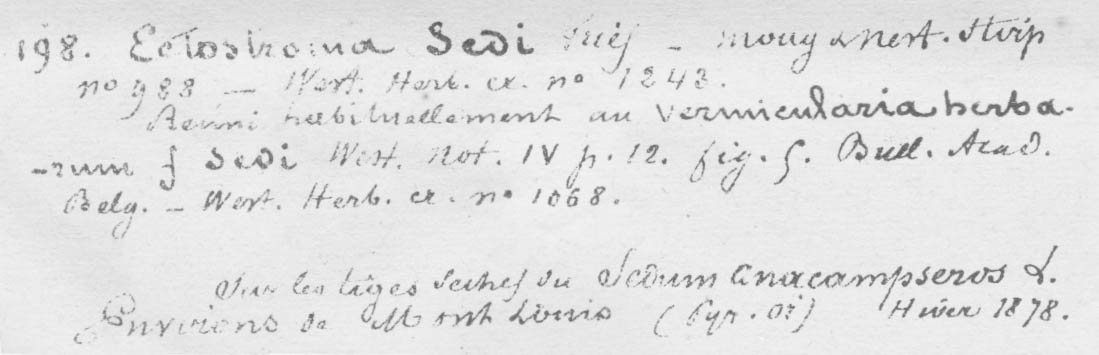 198. Ectostroma Sedi Fries – Moug & Nest. Stirp
no 988 — West. Herb. cr. no 1243.
Réuni habituellement au Vermicularia herba-
-rum f Sedi West. Not. IV p. 12. fig. 5. Bull. Acad.
Belg. – West. Herb. cr. no 1068.
Sur les tiges seches du Sedum anacampseros L.
Environs de Mont Louis (Pyr. Or) Hiver 1878.